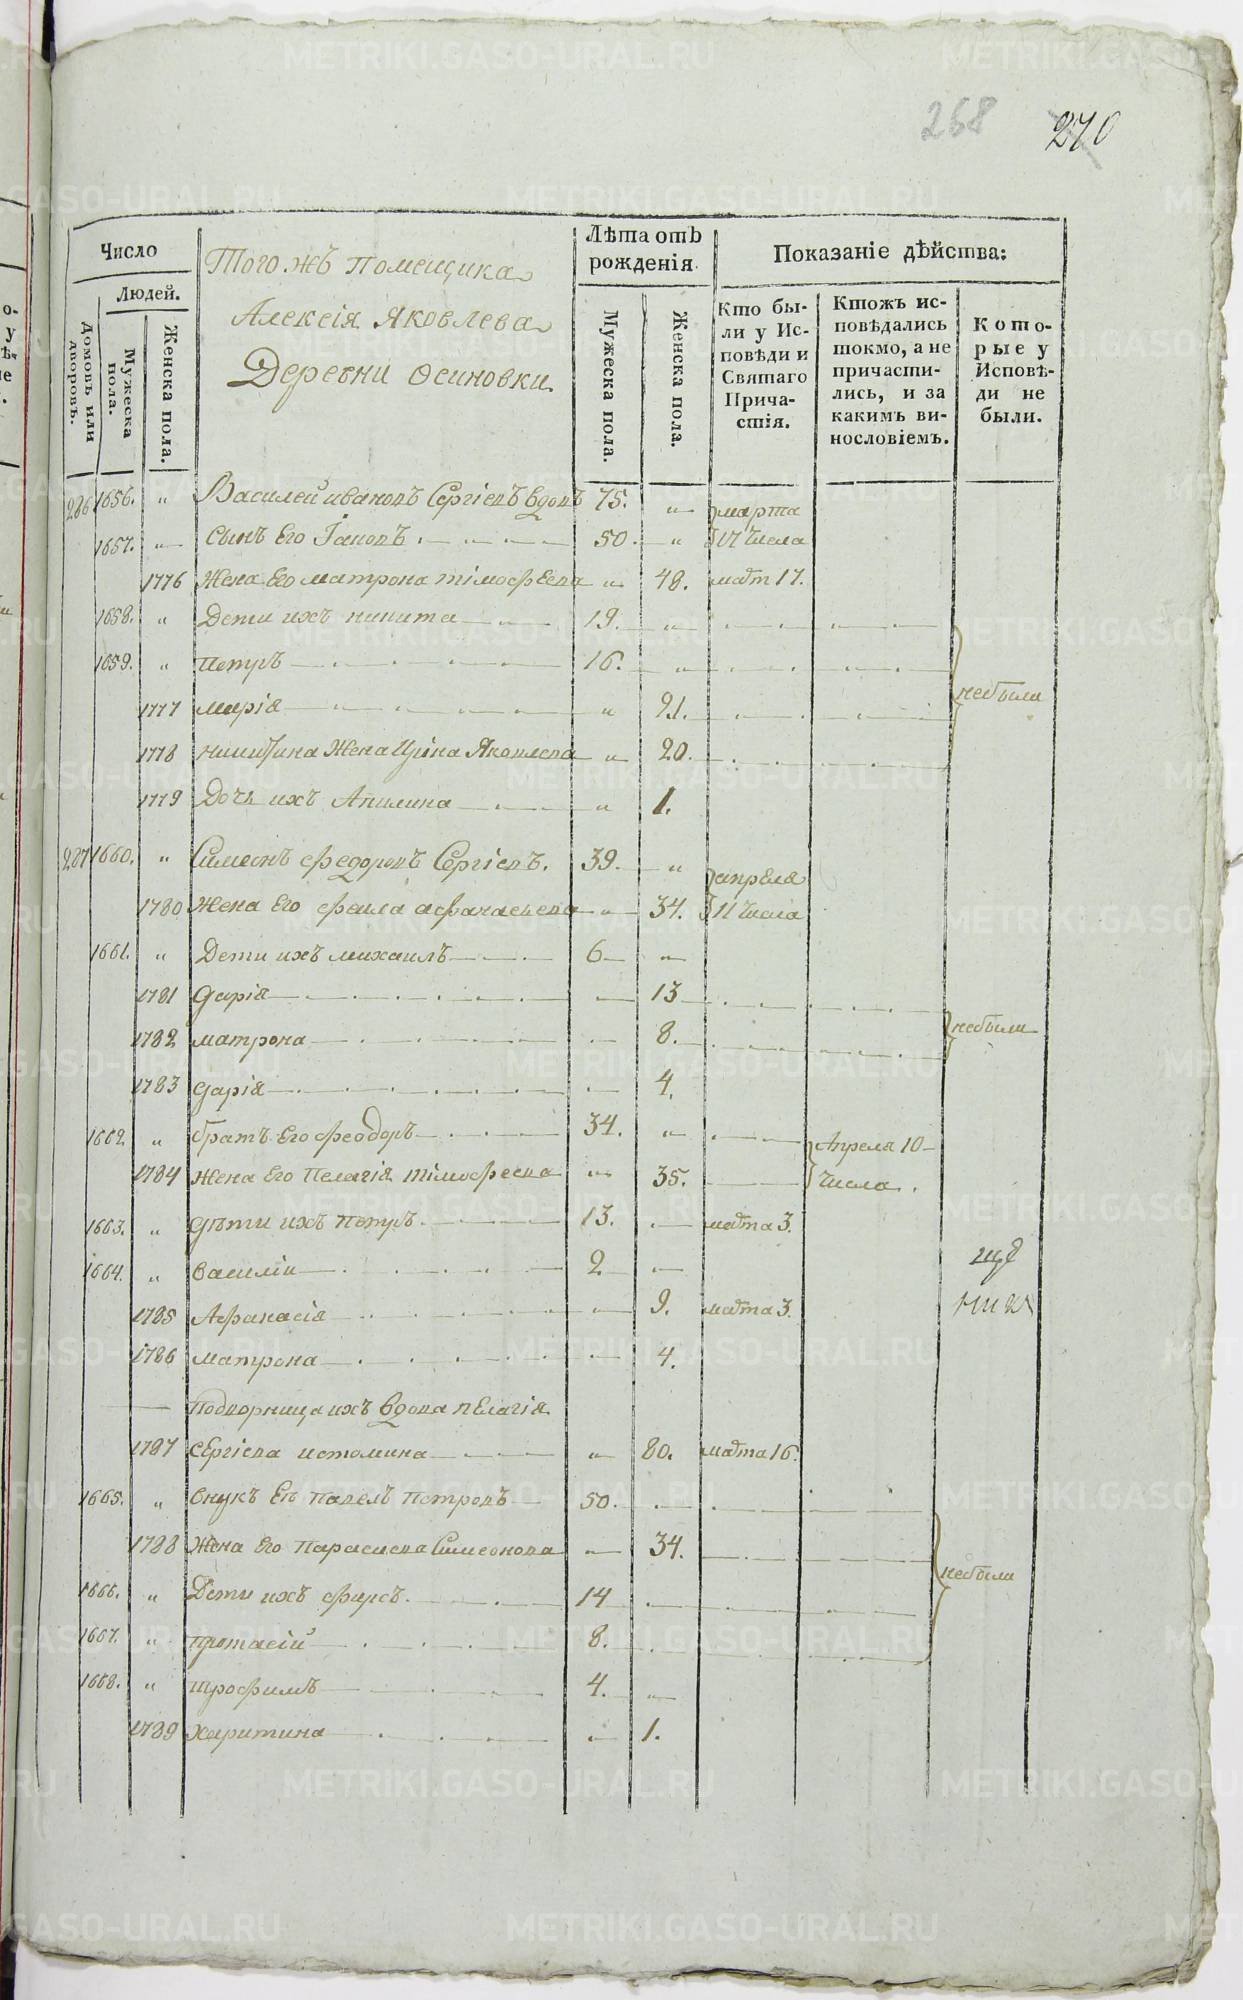 268 270
Число
Людей.
Домовъ или дворовъ.
Мужеска пола.
Женска пола.
Того жъ помещика
Алексія Яковлева
Деревни Осиновки
Лѣта отъ рожденія.
Мужеска пола.
Женска пола.
Показаніе дѣйства:
Кто бы-
ли у Ис-
повѣди и
Святаго
Прича-
стія.
Ктожъ ис-
повѣдались
токмо, а не
причасти-
лись, и за
какимъ ви-
нословіемъ.
Кото-
рые у
Исповѣ-
ди не
были.
286 1656. „ Василей Ивановъ Сергіевъ вдовъ 75. „ марта
1657. „ Сынъ Его Іаковъ 50. „ 17 числа
1776 Жена Его матрона тімофѣева „ 48. мат 17.
1658. „ Дети ихъ никита 19. „
1659. „ Петръ 16. „
небыли
1777 марія „ 21.
1778 никитина Жена Ирина Яковлева „ 20.
1779 Дочь ихъ Акилина „ 1.
287 1660. „ Симеонъ федоровъ Сергіевъ. 39. „ апреля
1780 Жена Его фекла афанасьева „ 34. 11 числа
1661. „ Дети ихъ михаилъ 6 „
1781 дарія 13
небыли
1782 матрона 8.
1783 дарія 4.
1662. „ братъ Его феодоръ 34. „ Апреля 10
1784 Жена Его Пелагія тімофеева „ 35. числа.
1663. „ дѣти ихъ Петръ 13. марта 3.
1664. „ Василіи 2
1785 Афанасія 9. марта 3.
1786 матрона 4.
Подворница ихъ вдова пЕлагія
1787 сЕргіева истомина „ 80. марта 16.
1665. „ внукъ Ея Павелъ Петровъ 50.
1788 Жена Его Параскева Симеонова 34.
небыли
1666. „ Дети ихъ фирсъ. 14
1667. „ протасій 8.
1668. „ трофимъ 4. „
1789 харитина 1.
METRIKI.GASO-URAL.RU